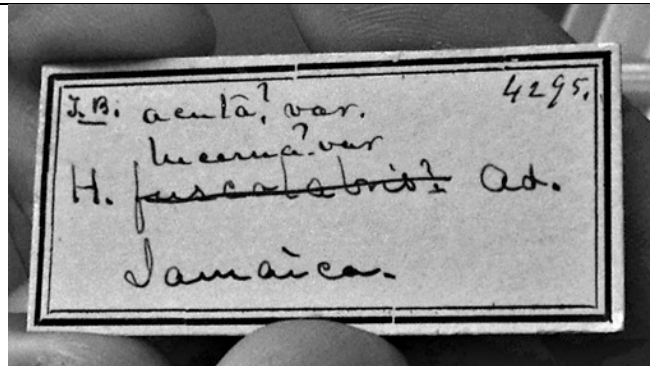 J.B. acuta? var. 4295.
lucerna? var
H. fuscolabris? Ad.
Jamaica.